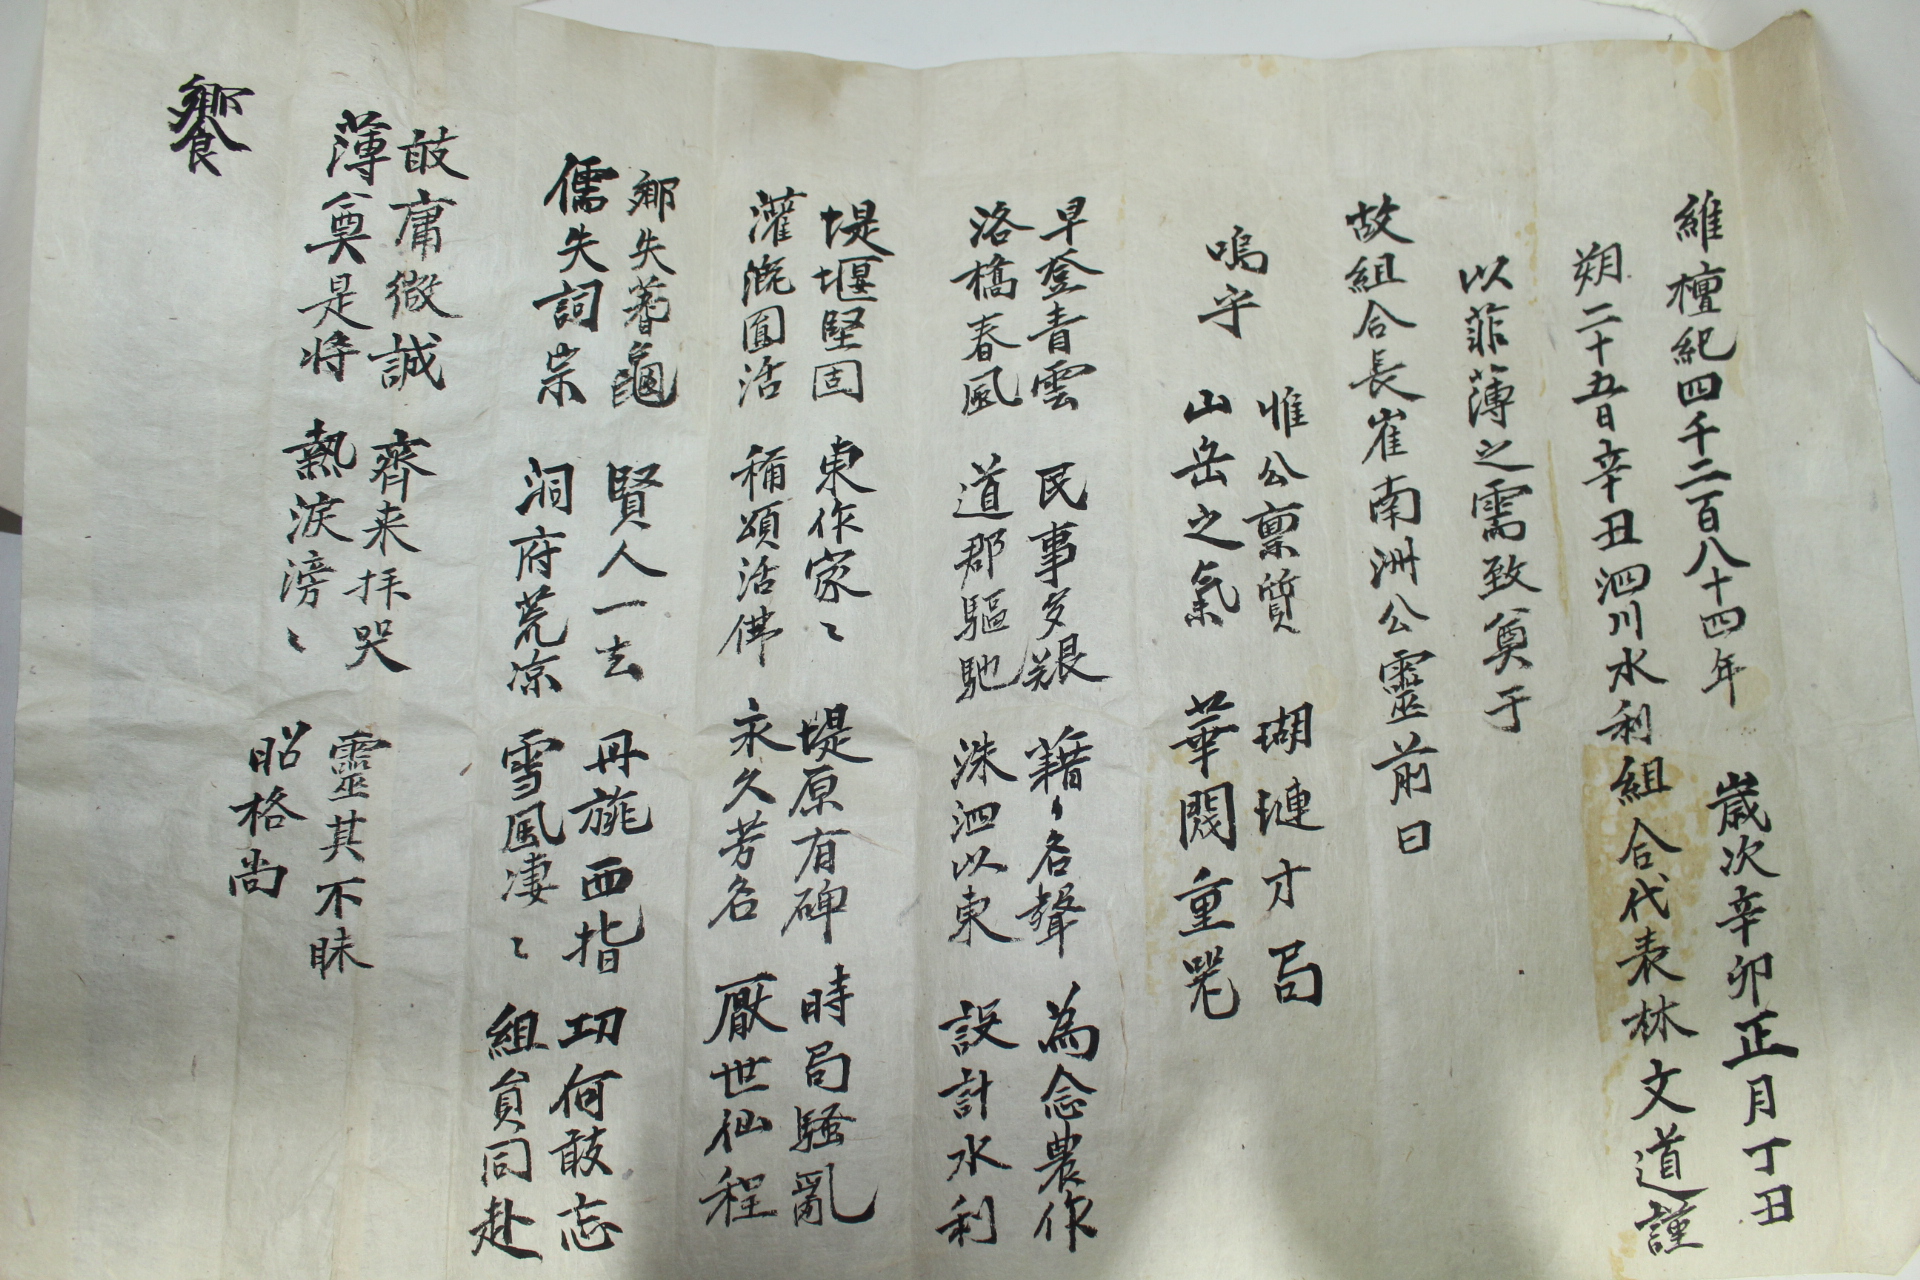 維檀紀四千二百八十四年 歲次辛卯正月丁丑
朔二十五日辛丑泗川水利組合代表林文道謹
以菲薄之需致奠于
故組合長崔南洲公靈前曰
嗚乎 惟公稟質 瑚璉才局
山岳之氣 華閥重望
早登青雲 民事多艱 藉〻名聲 為念農作
洛橋春風 道郡驅馳 洙泗以東 設計水利
堤堰堅固 東作家〻 堤原有碑 時局騷亂
灌漑圓活 稱頌活佛 永久芳名 厭世仙程
鄉失蓍龜 賢人一去 丹旐西指 功何敢忘
儒失詞宗 洞府荒凉 雪風凄〻 組員同赴
敢庸微誠 齊来拜哭 靈其不昧
薄奠是將 熱淚滂〻 昭格尚
饗